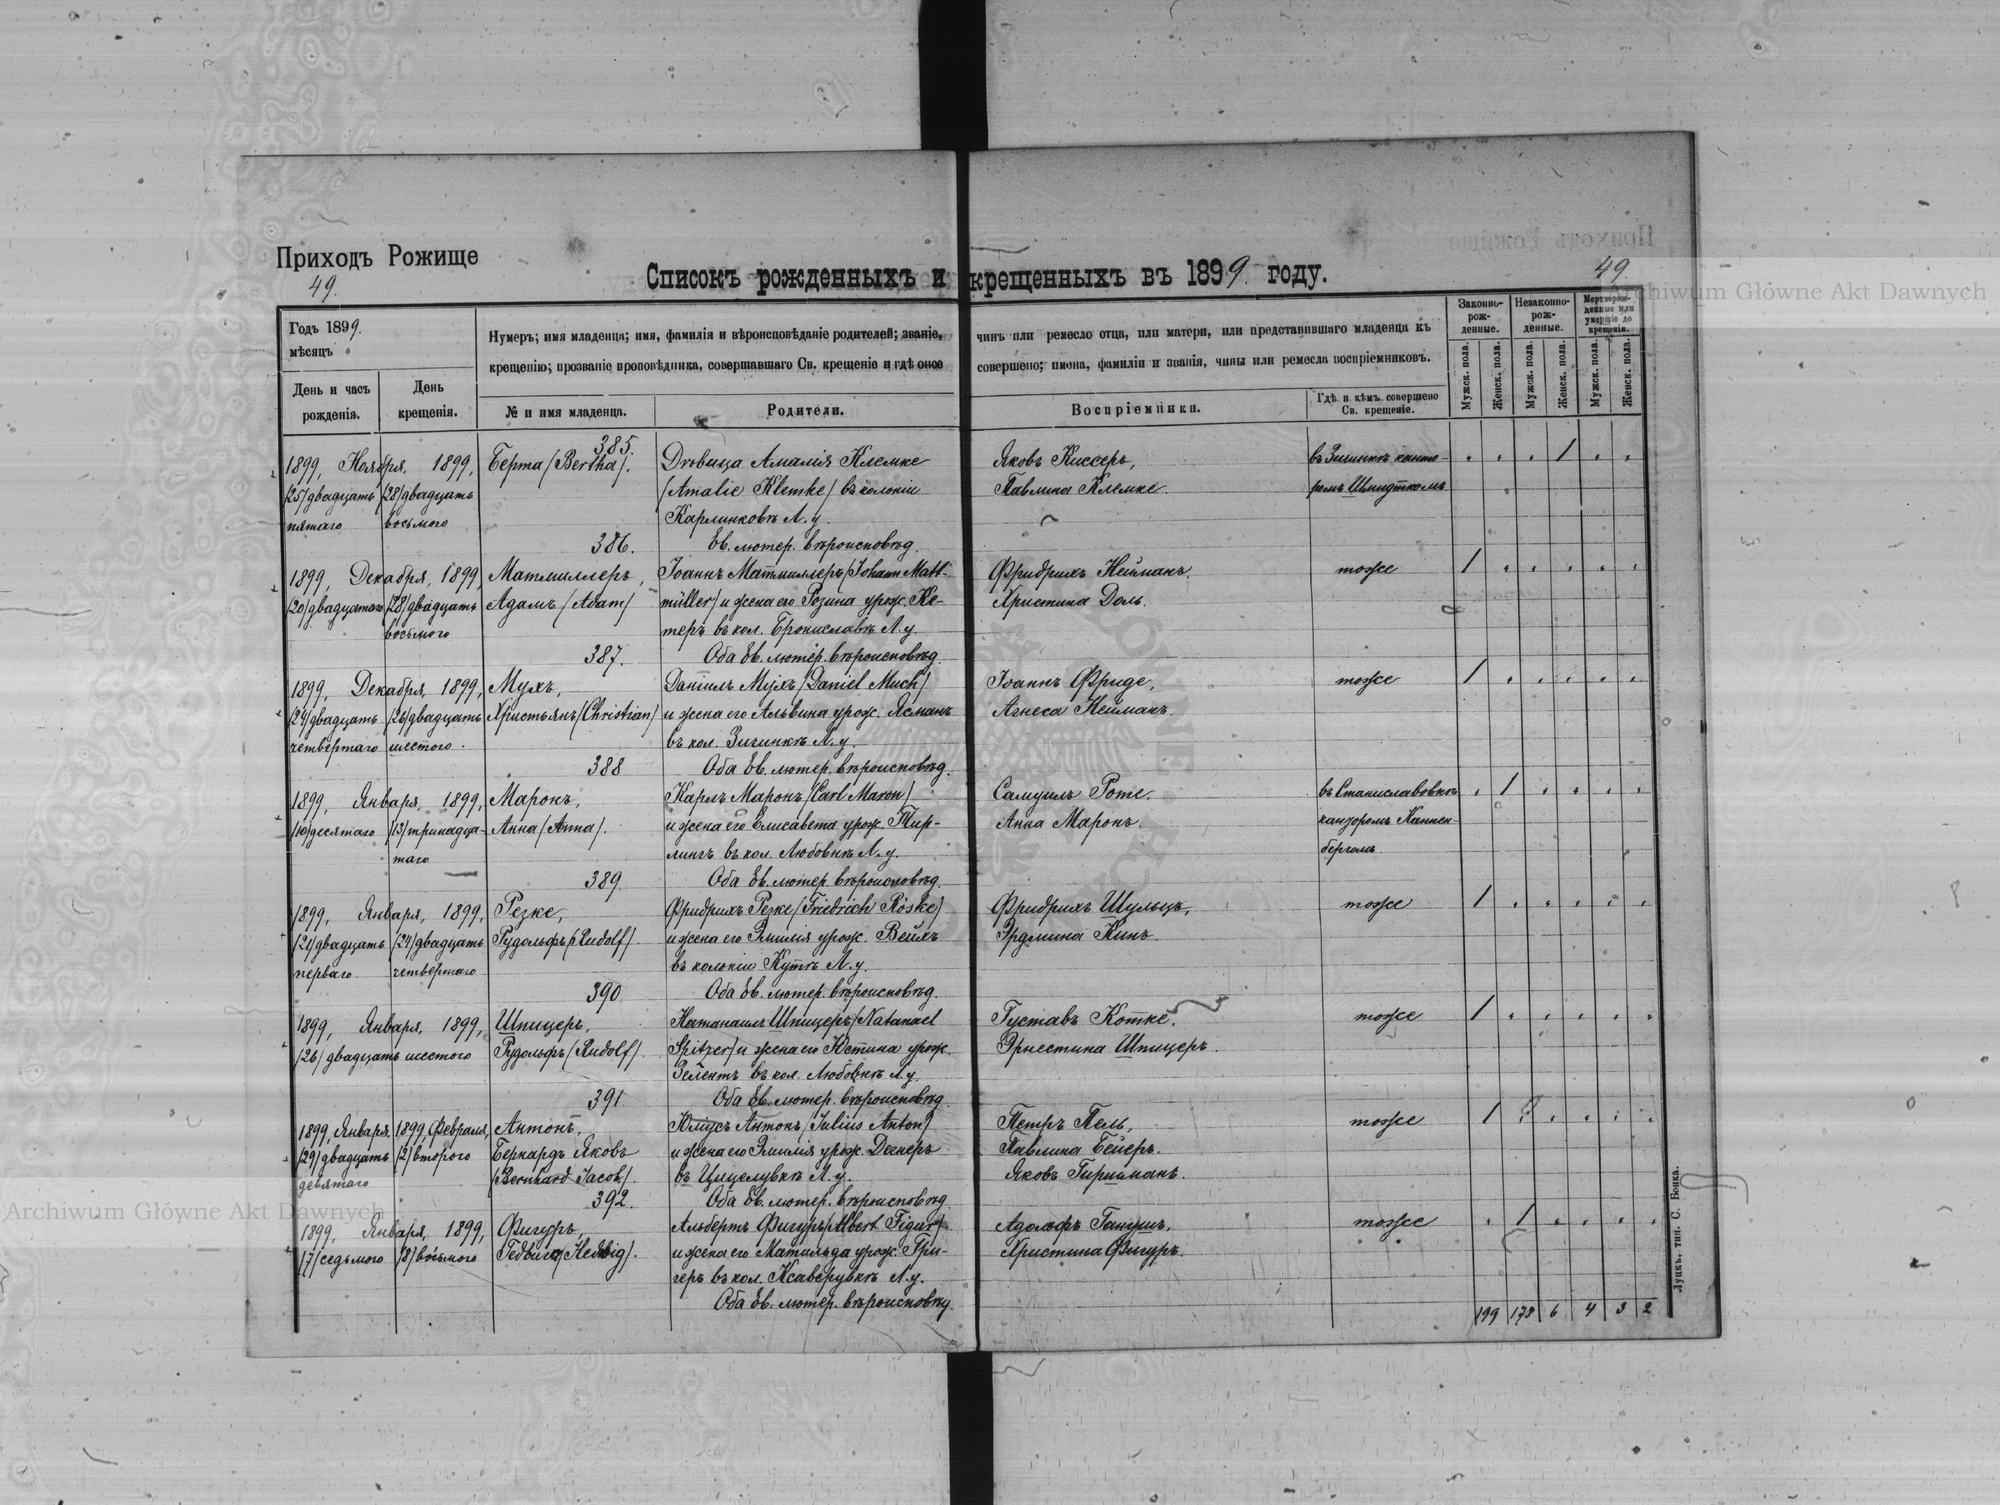 Приходъ Рожище
49.
Списокъ рожденныхъ и крещенныхъ въ 1899 году.
49.
Archiwum Główne Akt Dawnych
Годъ 1899.
мѣсяцъ
День и часъ
рожденія.
День
крещенія.
Нумеръ; имя младенца; имя, фамилія и вѣроисповѣданіе родителей; званіе,
крещенію; прозваніе проповѣдника, совершавшаго Св. крещеніе и гдѣ оное
№ и имя младенца.
Родители.
чинъ или ремесло отца, или матери, или представившаго младенца къ
совершено; имена, фамиліи и званія, чины или ремесла воспріемниковъ.
Воспріемники.
Гдѣ и кѣмъ совершено
Св. крещеніе.
Законно-
рож-
денные.
Незаконно-
рож-
денные.
Мертворож-
денные или
умершіе до
крещенія.
Мужск. пола.
Женск. пола.
Мужск. пола.
Женск. пола.
Мужск. пола.
Женск. пола.
385.
1899, Ноября, 1899, Берта (Bertha). Дѣвица Амалія Клемке Яковъ Киссеръ, въ Зичинкѣ канто-
(25) двадцать (28) двадцать (Amalie Klemke) въ колоніи Павлина Клемке. ромъ Шмидткомъ.
пятаго восьмого Карлинковкѣ Л. у.
386. Ев. лютер. вѣроисповѣд.
1899, Декабря, 1899, Матмиллеръ, Іоаннъ Матмиллеръ (Johann Matt- Фридрихъ Нейманъ, тоже
(20) двадцатаго (28) двадцать Адамъ (Adam) müller) и жена его Розина урож. Ке- Христина Доль.
восьмого теръ въ кол. Брониславкѣ Л. у.
387. Оба Ев. лютер. вѣроисповѣд.
1899, Декабря, 1899, Мухъ, Даніилъ Мухъ (Daniel Much) Іоаннъ Фриде, тоже
(24) двадцать (26) двадцать Христьянъ (Christian) и жена его Альвина урож. Ясманъ Агнеса Нейманъ.
четвертаго шестого. въ кол. Зичинкѣ Л. у.
388 Оба Ев. лютер. вѣроисповѣд.
1899, Января, 1899, Маронъ, Карлъ Маронъ (Carl Maron) Самуилъ Роте. въ Станиславовкѣ
(10) десятаго (13) тринадца- Анна (Anna). и жена его Елисавета урож. Тир- Анна Маронъ. канторомъ Каннен-
таго лингъ въ кол. Любовнкѣ Л. у. бергомъ.
389. Оба Ев. лютер. вѣроисповѣд.
1899, Января, 1899, Резке, Фридрихъ Резке (Friedrich Röske) Фридрихъ Шульцъ, тоже
(21) двадцать (24) двадцать Рудольфъ (Rudolf). и жена его Эмилія урож. Вейхъ Эрдмина Кинъ.
перваго четвертаго въ колоніи Куткѣ Л. у.
390 Оба Ев. лютер. вѣроисповѣд.
1899, Января, 1899, Шпицеръ, Натанаилъ Шпицеръ (Natanael Густавъ Котке, тоже
(26) двадцать шестого Рудольфъ (Rudolf). Spitzer) и жена его Юстина урож. Эрнестина Шпицеръ.
Зелентъ въ кол. Любовнкѣ Л. у.
391 Оба Ев. лютер. вѣроисповѣд.
1899, Января. 1899, Февраля, Антонъ, Юліусъ Антонъ (Julius Anton) Петръ Пель, тоже
(29) двадцать (2) второго Бернардъ Яковъ и жена его Эмилія урож. Декеръ Павлина Бейеръ.
девятаго (Bernhard Jacob). въ Цицелувкѣ Л. у. Яковъ Гиршманъ.
392. Оба Ев. лютер. вѣроисповѣд.
1899, Января, 1899, Фигуръ, Альбертъ Фигуръ (Albert Figur) Адольфъ Ганушъ, тоже
(7) седьмого (8) восьмого Гедвига (Hedwig). и жена его Матильда урож. Гри- Христина Фигуръ.
геръ въ кол. Ксаверувкѣ Л. у.
Оба Ев. лютер. вѣроисповѣд.
199 178 6 4 3 2
Луцкъ, тип. С. Бонка.
Archiwum Główne Akt Dawnych